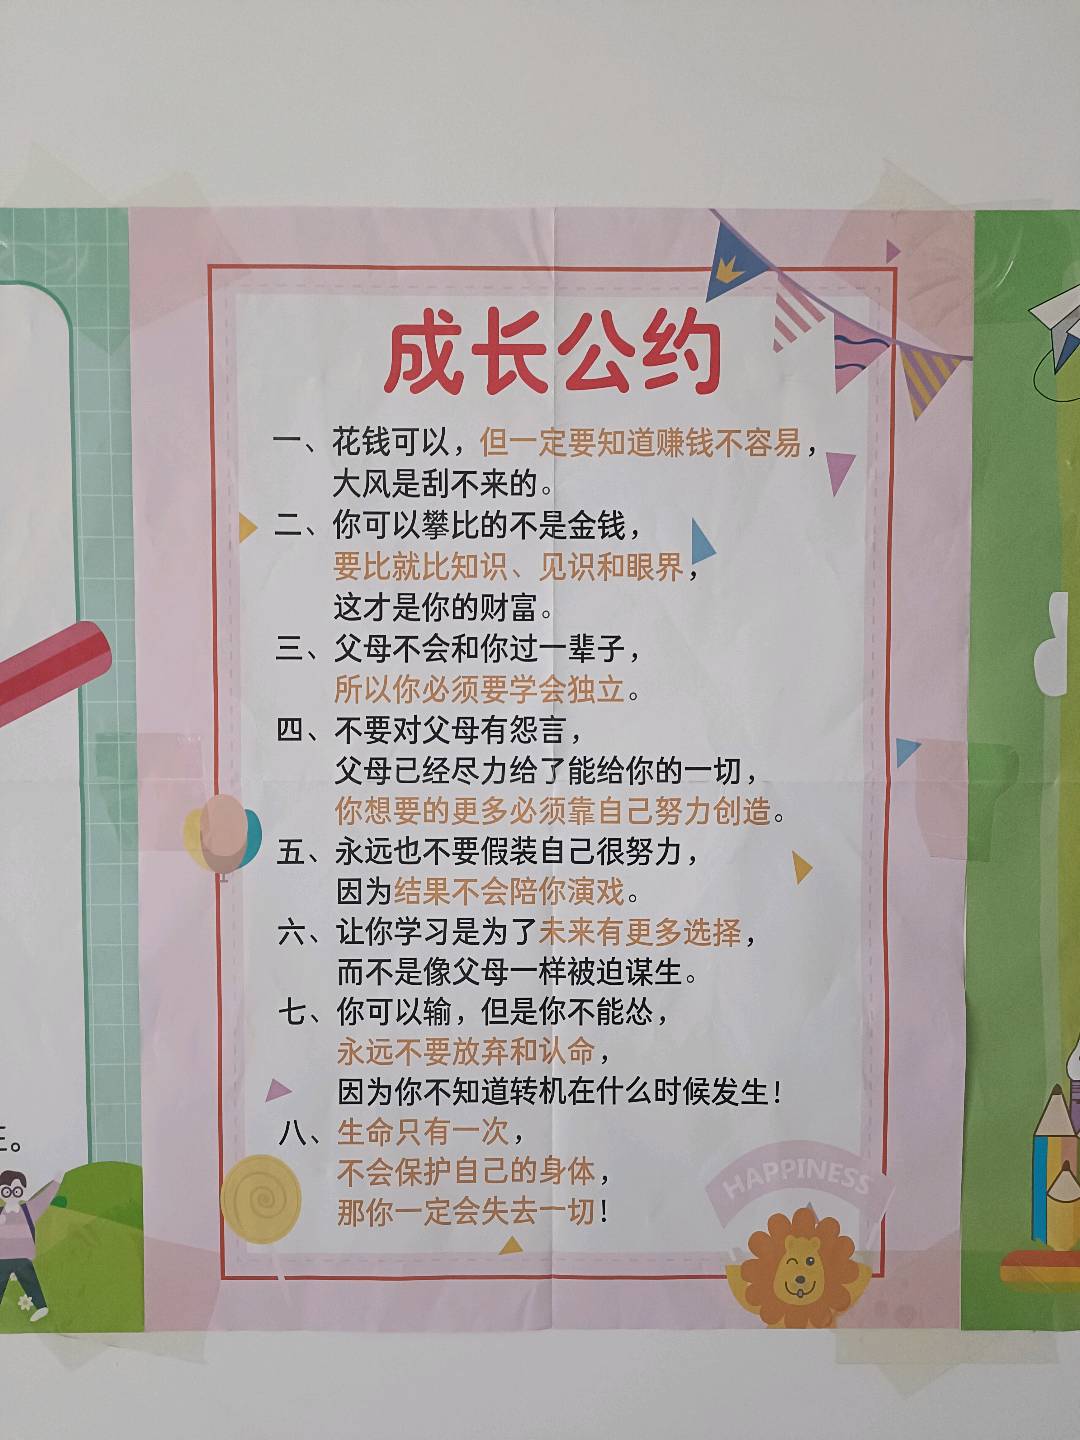 成长公约
一、花钱可以，但一定要知道赚钱不容易，
大风是刮不来的。
二、你可以攀比的不是金钱，
要比就比知识、见识和眼界，
这才是你的财富。
三、父母不会和你过一辈子，
所以你必须要学会独立。
四、不要对父母有怨言，
父母已经尽力给了能给你的一切，
你想要的更多必须靠自己努力创造。
五、永远也不要假装自己很努力，
因为结果不会陪你演戏。
六、让你学习是为了未来有更多选择，
而不是像父母一样被迫谋生。
七、你可以输，但是你不能怂，
永远不要放弃和认命，
因为你不知道转机在什么时候发生！
八、生命只有一次，
不会保护自己的身体，
那你一定会失去一切！
HAPPINESS